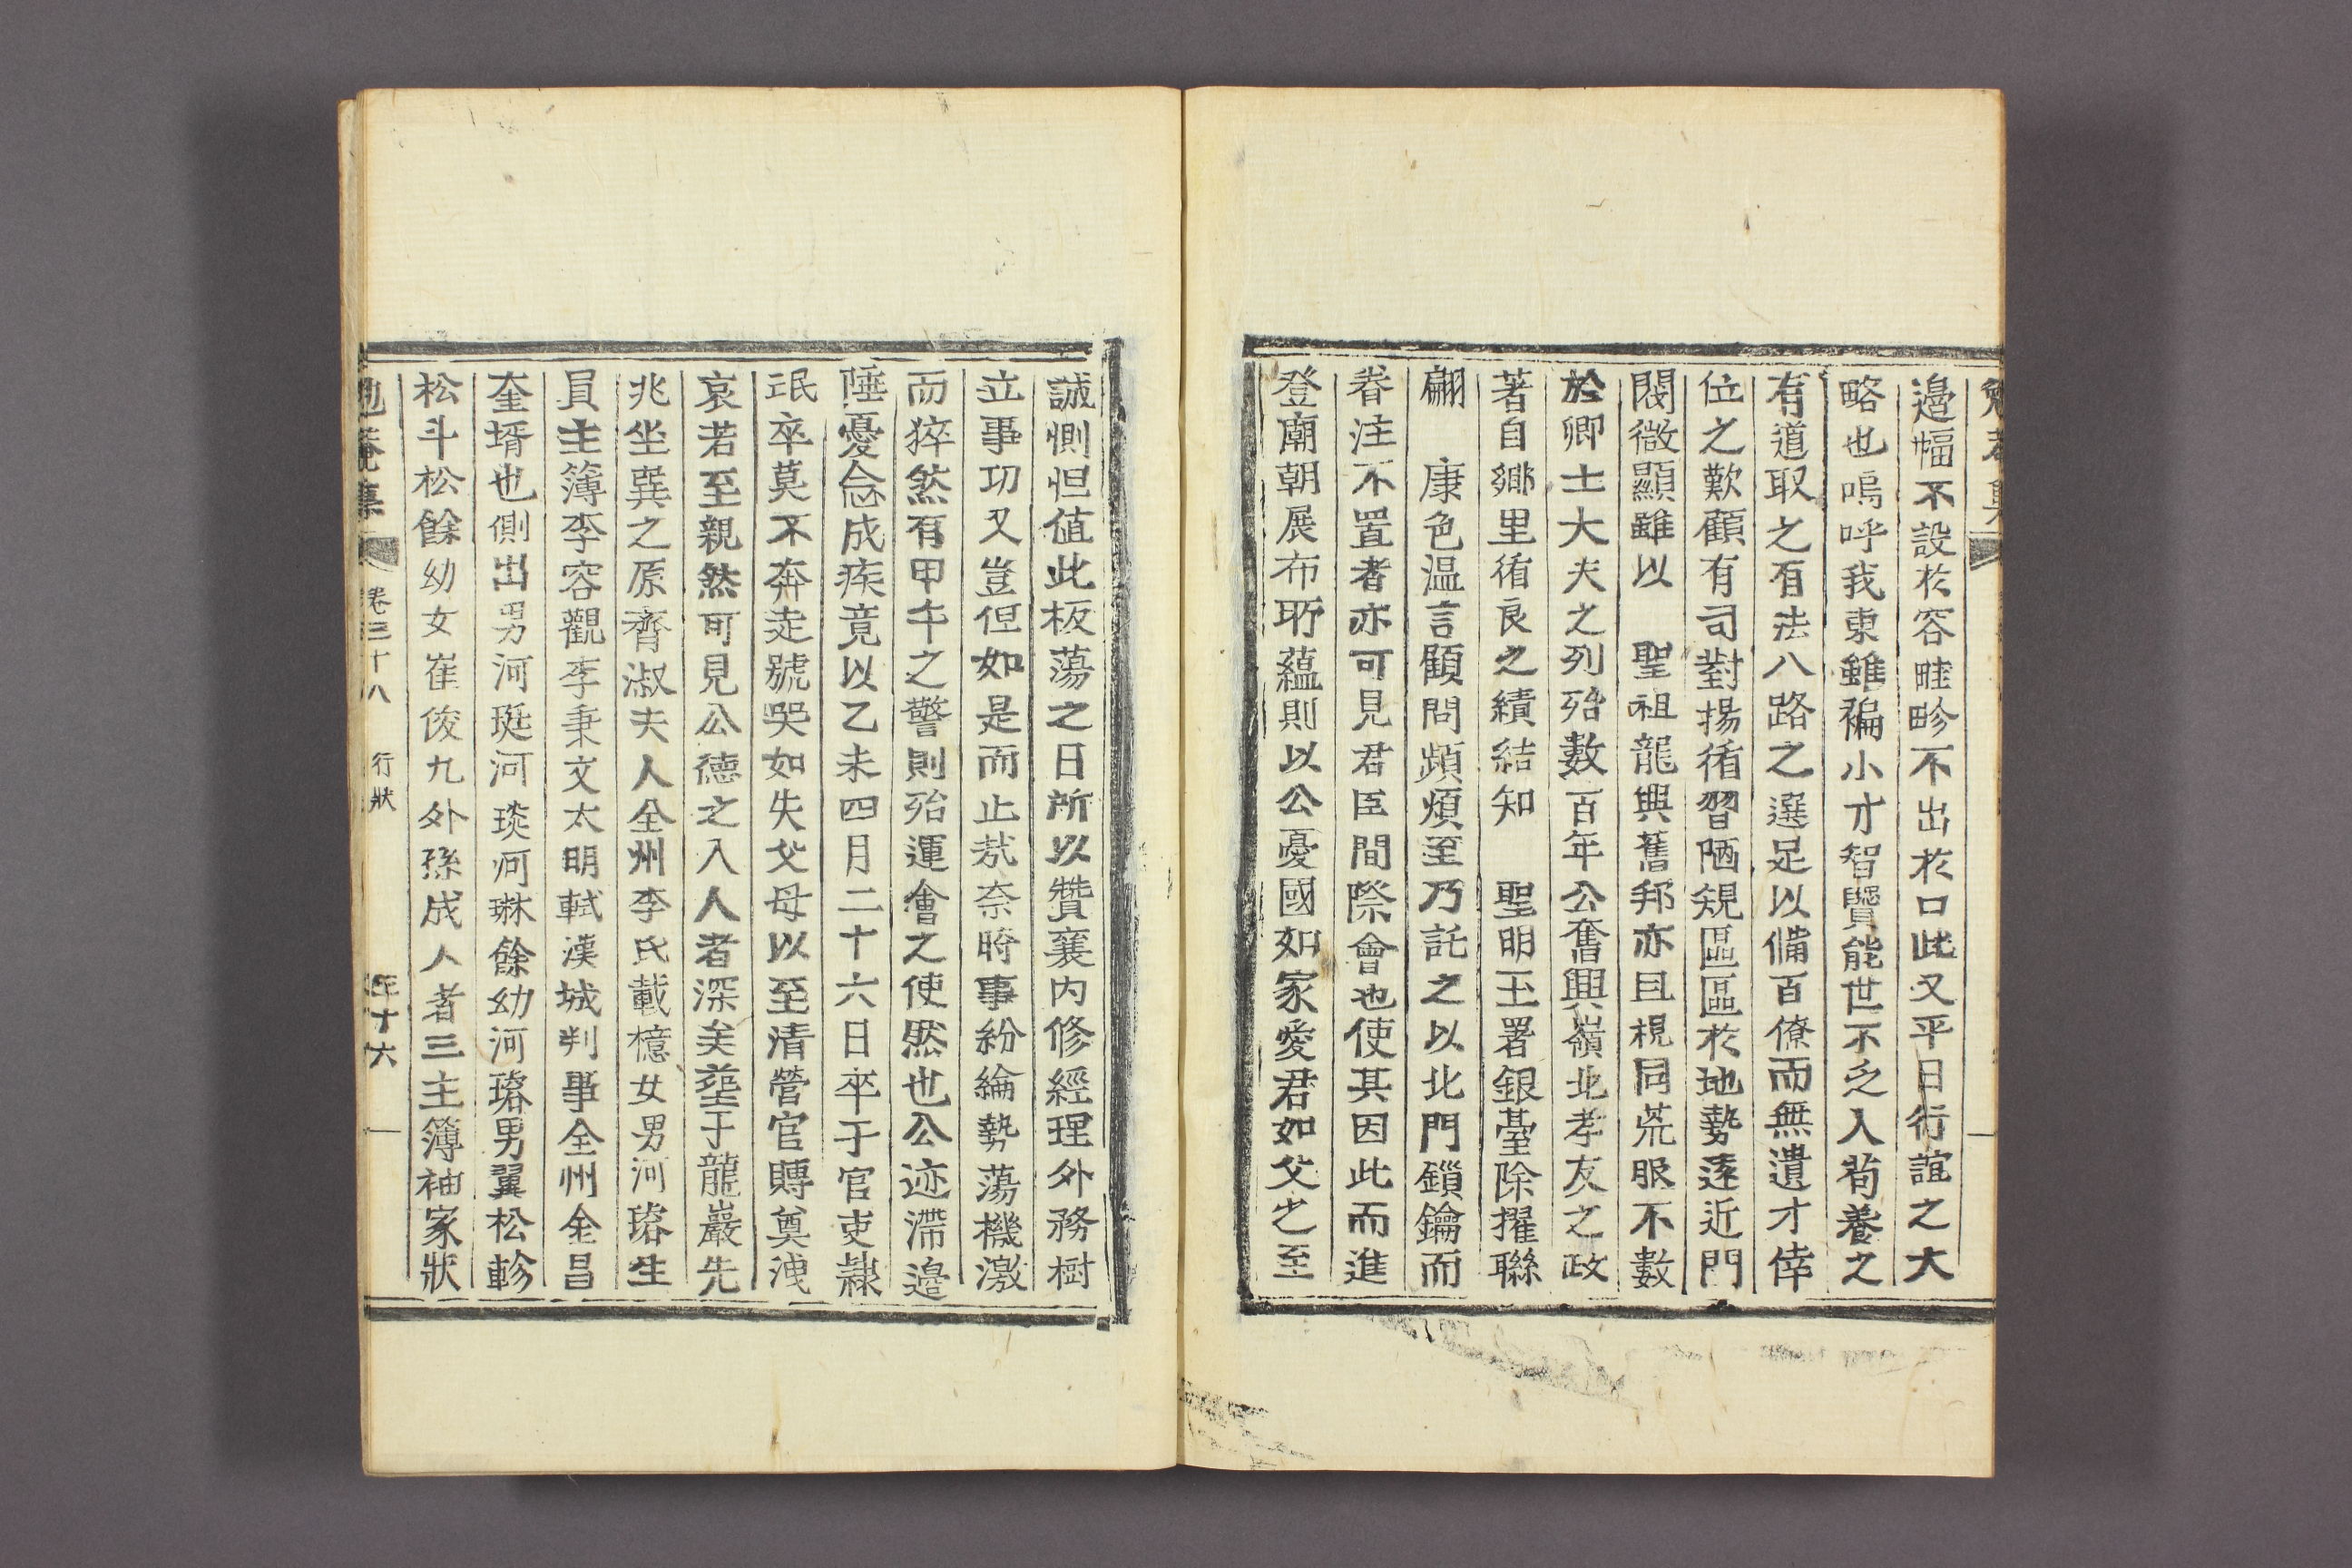 勉菴集
邉幅不設於容畦畛不出於口此又平日行誼之大
略也嗚呼我東雖褊小才智賢能世不乏人苟養之
有道取之有法八路之選足以備百僚而無遺才倖
位之歎顧有司對揚循習陋規區區於地勢遠近門
閥微顯雖以　聖祖龍興舊邦亦且視同荒服不數
於卿士大夫之列殆數百年公奮興嶺北孝友之政
著自鄉里循良之績結知　聖明玉署銀臺除擢聯
翩　康色溫言顧問頻煩至乃託之以北門鎖鑰而
眷注不置者亦可見君臣間際會也使其因此而進
登廟朝展布所蘊則以公憂國如家愛君如父之至
誠惻怛値此板蕩之日所以贊襄內修經理外務樹
立事功又豈但如是而止㢤奈時事紛綸勢蕩機激
而猝然有甲午之警則殆運會之使然也公迹滯邉
陲憂念成疾竟以乙未四月二十六日卒于官吏隷
氓卒莫不奔走號哭如失父母以至淸營官賻奠洩
哀若至親然可見公德之入人者深矣塟于龍巖先
兆坐巽之原齊淑夫人全州李氏載檍女男河璿生
員主簿李容觀李秉文太明軾漢城判事全州金昌
奎壻也側出男河珽河琰河琳餘幼河璿男翼松軫
松斗松餘幼女崔俊九外孫成人者三主簿袖家狀
勉菴集　卷三十八　行狀　三十六